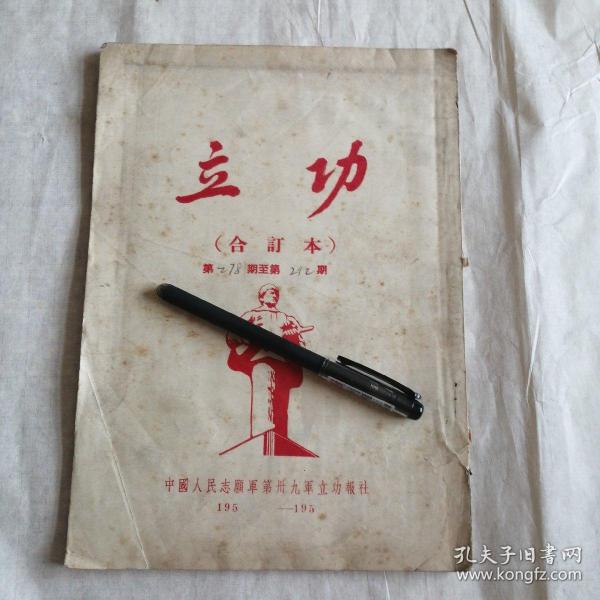 立功
(合訂本)
第278期至第212期
中國人民志願軍第卅九軍立功報社
195 —195
孔夫子旧書网
www.kongfz.com